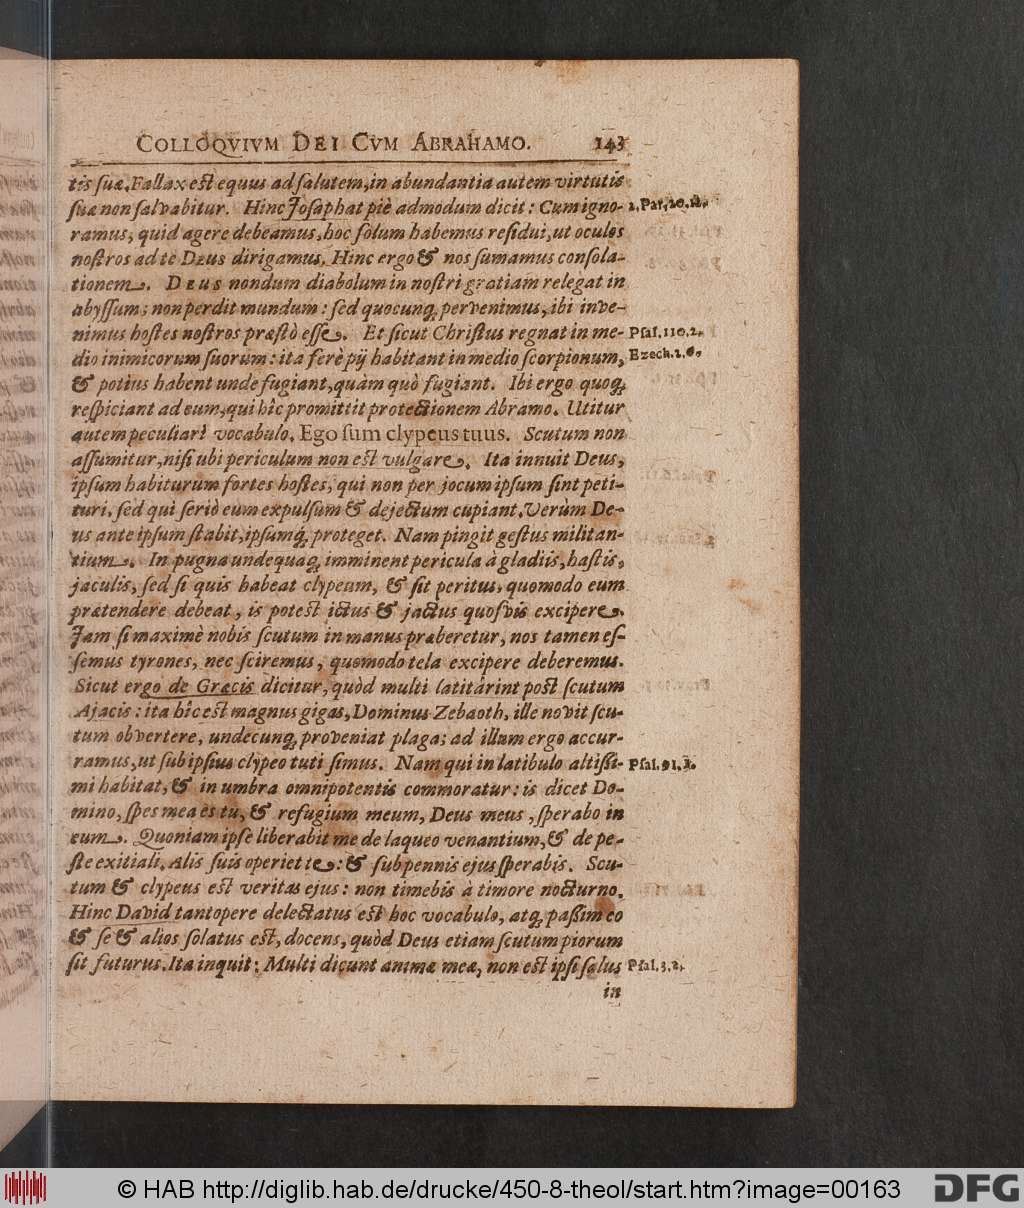 COLLOQVIVM DEI CVM ABRAHAMO. 143
tis suæ. Fallax est equus ad salutem, in abundantia autem virtutis
suæ non salvabitur. Hinc Josaphat piè admodum dicit: Cum igno- 2. Par. 20. 12.
ramus, quid agere debeamus, hoc solum habemus residui, ut oculos
nostros ad te DEUS dirigamus. Hinc ergo & nos sumamus consola-
tionem. DEUS nondum diabolum in nostri gratiam relegat in
abyssum; non perdit mundum: sed quocunq; pervenimus, ibi inve-
nimus hostes nostros præstò esse. Et sicut Christus regnat in me- Psal. 110. 2.
dio inimicorum suorum: ita ferè pij habitant in medio scorpionum, Ezech. 2. 6.
& potius habent unde fugiant, quàm quò fugiant. Ibi ergo quoq;
respiciant ad eum, qui hîc promittit protectionem Abramo. Utitur
autem peculiari vocabulo, Ego sum clypeus tuus. Scutum non
assumitur, nisi ubi periculum non est vulgare. Ita innuit Deus,
ipsum habiturum fortes hostes, qui non per jocum ipsum sint peti-
turi, sed qui seriò eum expulsum & dejectum cupiant. Verùm De-
us ante ipsum stabit, ipsumq; proteget. Nam pingit gestus militan-
tium. In pugna undequaq; imminent pericula à gladiis, hastis,
jaculis, sed si quis habeat clypeum, & sit peritus, quomodo eum
prætendere debeat, is potest ictus & jactus quosvis excipere.
Jam si maximè nobis scutum in manus præberetur, nos tamen es-
semus tyrones, nec sciremus, quomodo tela excipere deberemus.
Sicut ergo de Græcis dicitur, quòd multi latitârint post scutum
Ajacis: ita hîc est magnus gigas, Dominus Zebaoth, ille novit scu-
tum obvertere, undecunq; proveniat plaga; ad illum ergo accur-
ramus, ut sub ipsius clypeo tuti simus. Nam qui in latibulo altissi- Psal. 91. 1.
mi habitat, & in umbra omnipotentis commoratur: is dicet Do-
mino, spes mea es tu, & refugium meum, Deus meus, sperabo in
eum. Quoniam ipse liberabit me de laqueo venantium, & de pe-
ste exitiali. Alis suis operiet te: & sub pennis ejus sperabis. Scu-
tum & clypeus est veritas ejus: non timebis à timore nocturno.
Hinc David tantopere delectatus est hoc vocabulo, atq; passim eo
& se & alios solatus est, docens, quòd Deus etiam scutum piorum
sit futurus. Ita inquit: Multi dicunt animæ meæ, non est ipsi salus Psal. 3. 2.
in
© HAB http://diglib.hab.de/drucke/450-8-theol/start.htm?image=00163
DFG